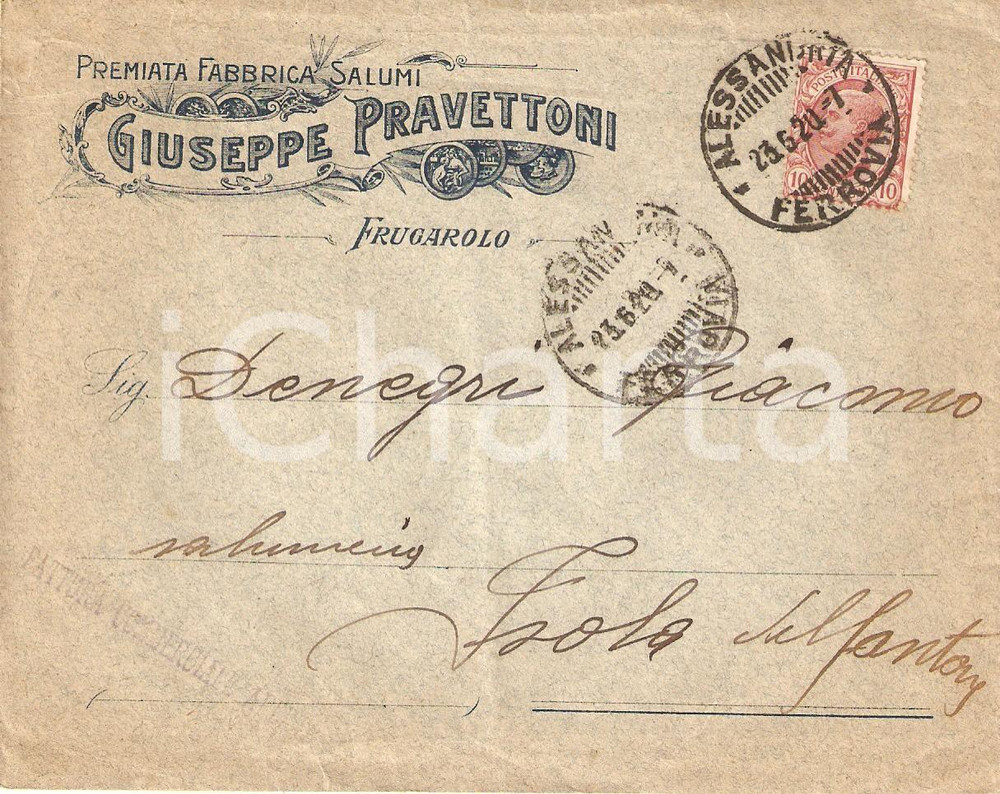 PREMIATA FABBRICA SALUMI
GIUSEPPE PRAVETTONI
FRUGAROLO
POSTE ITALIANE
10 10
* ALESSANDRIA *
23.6.20.-7
FERROVIA
* ALESSANDRIA *
23.6.20.-7
FERROVIA
Sig. Denegri Giacomo
iCharta
salumeria
Isola del Cantone
FATTURA